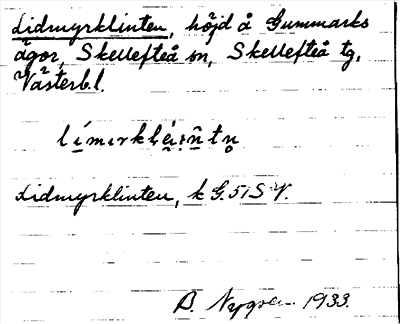 Lidmyrklinten, höjd å Gummarks
ägor, Skellefteå sn, Skellefteå tg,
Västerb.l.
Lidmyrklinten, k G. 51 S V.
B. 1933.